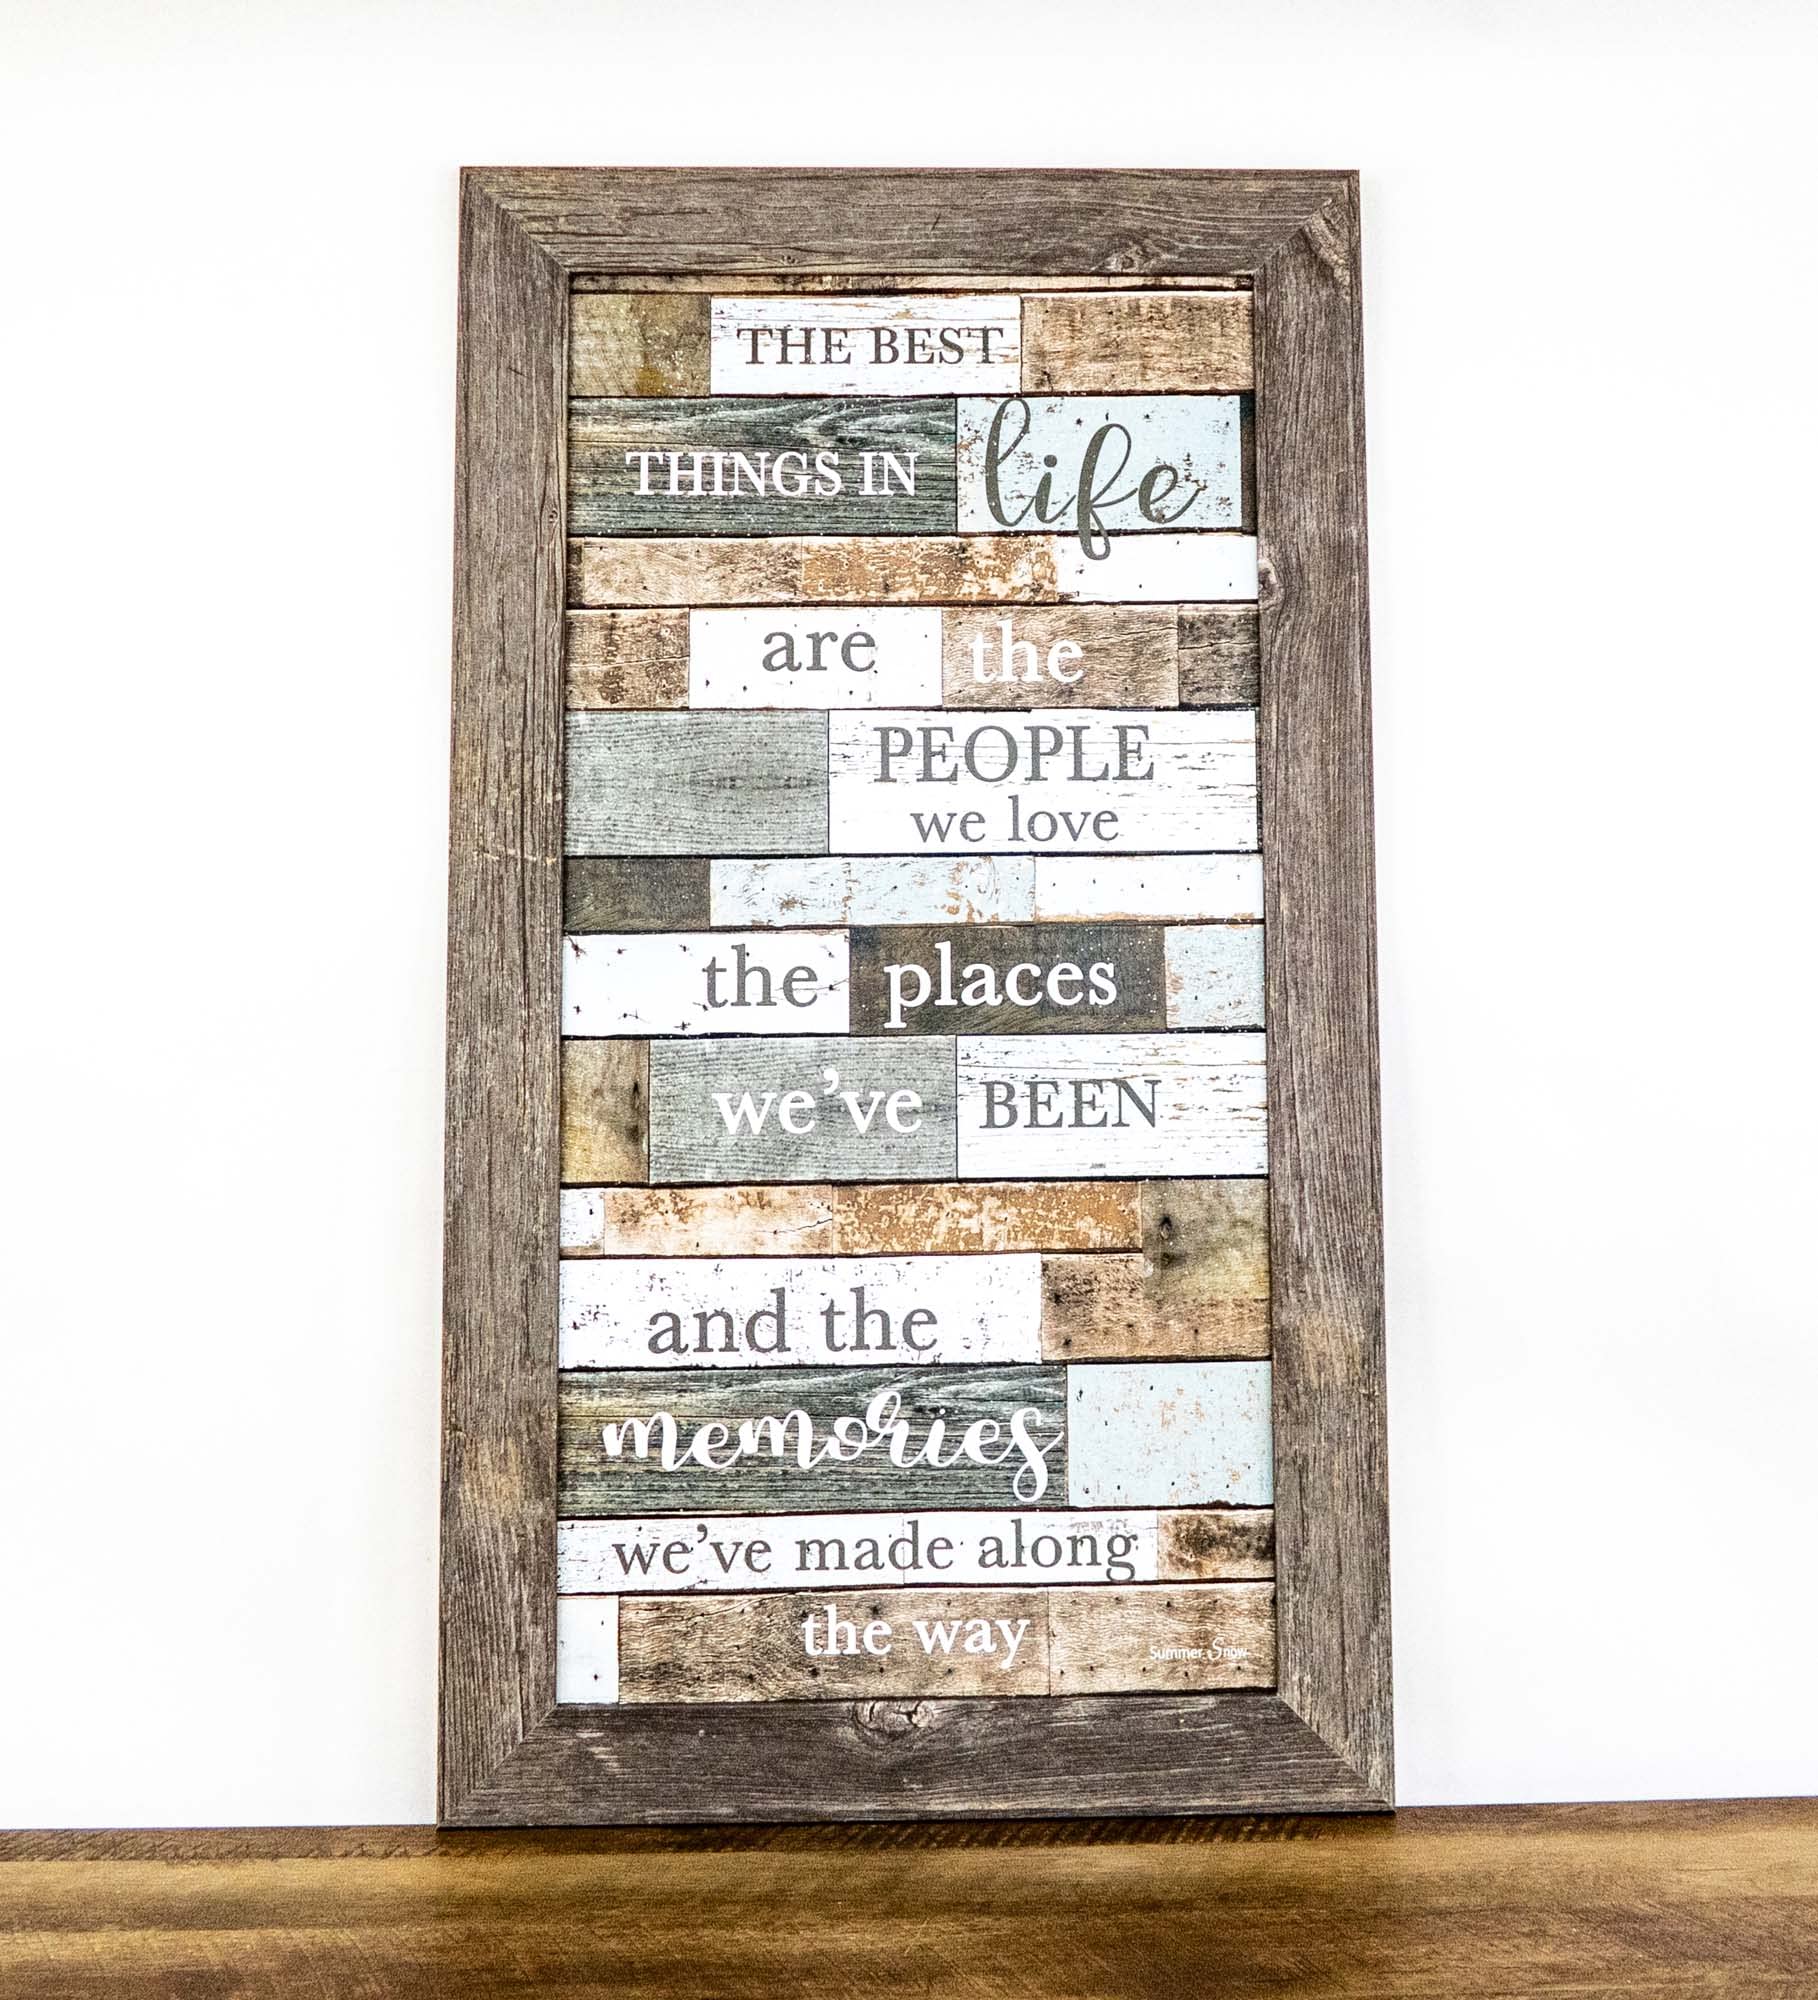 THE BEST
THINGS IN life
are the
PEOPLE
we love
the places
we've BEEN
and the
memories
we've made along
the way
Summer Snow